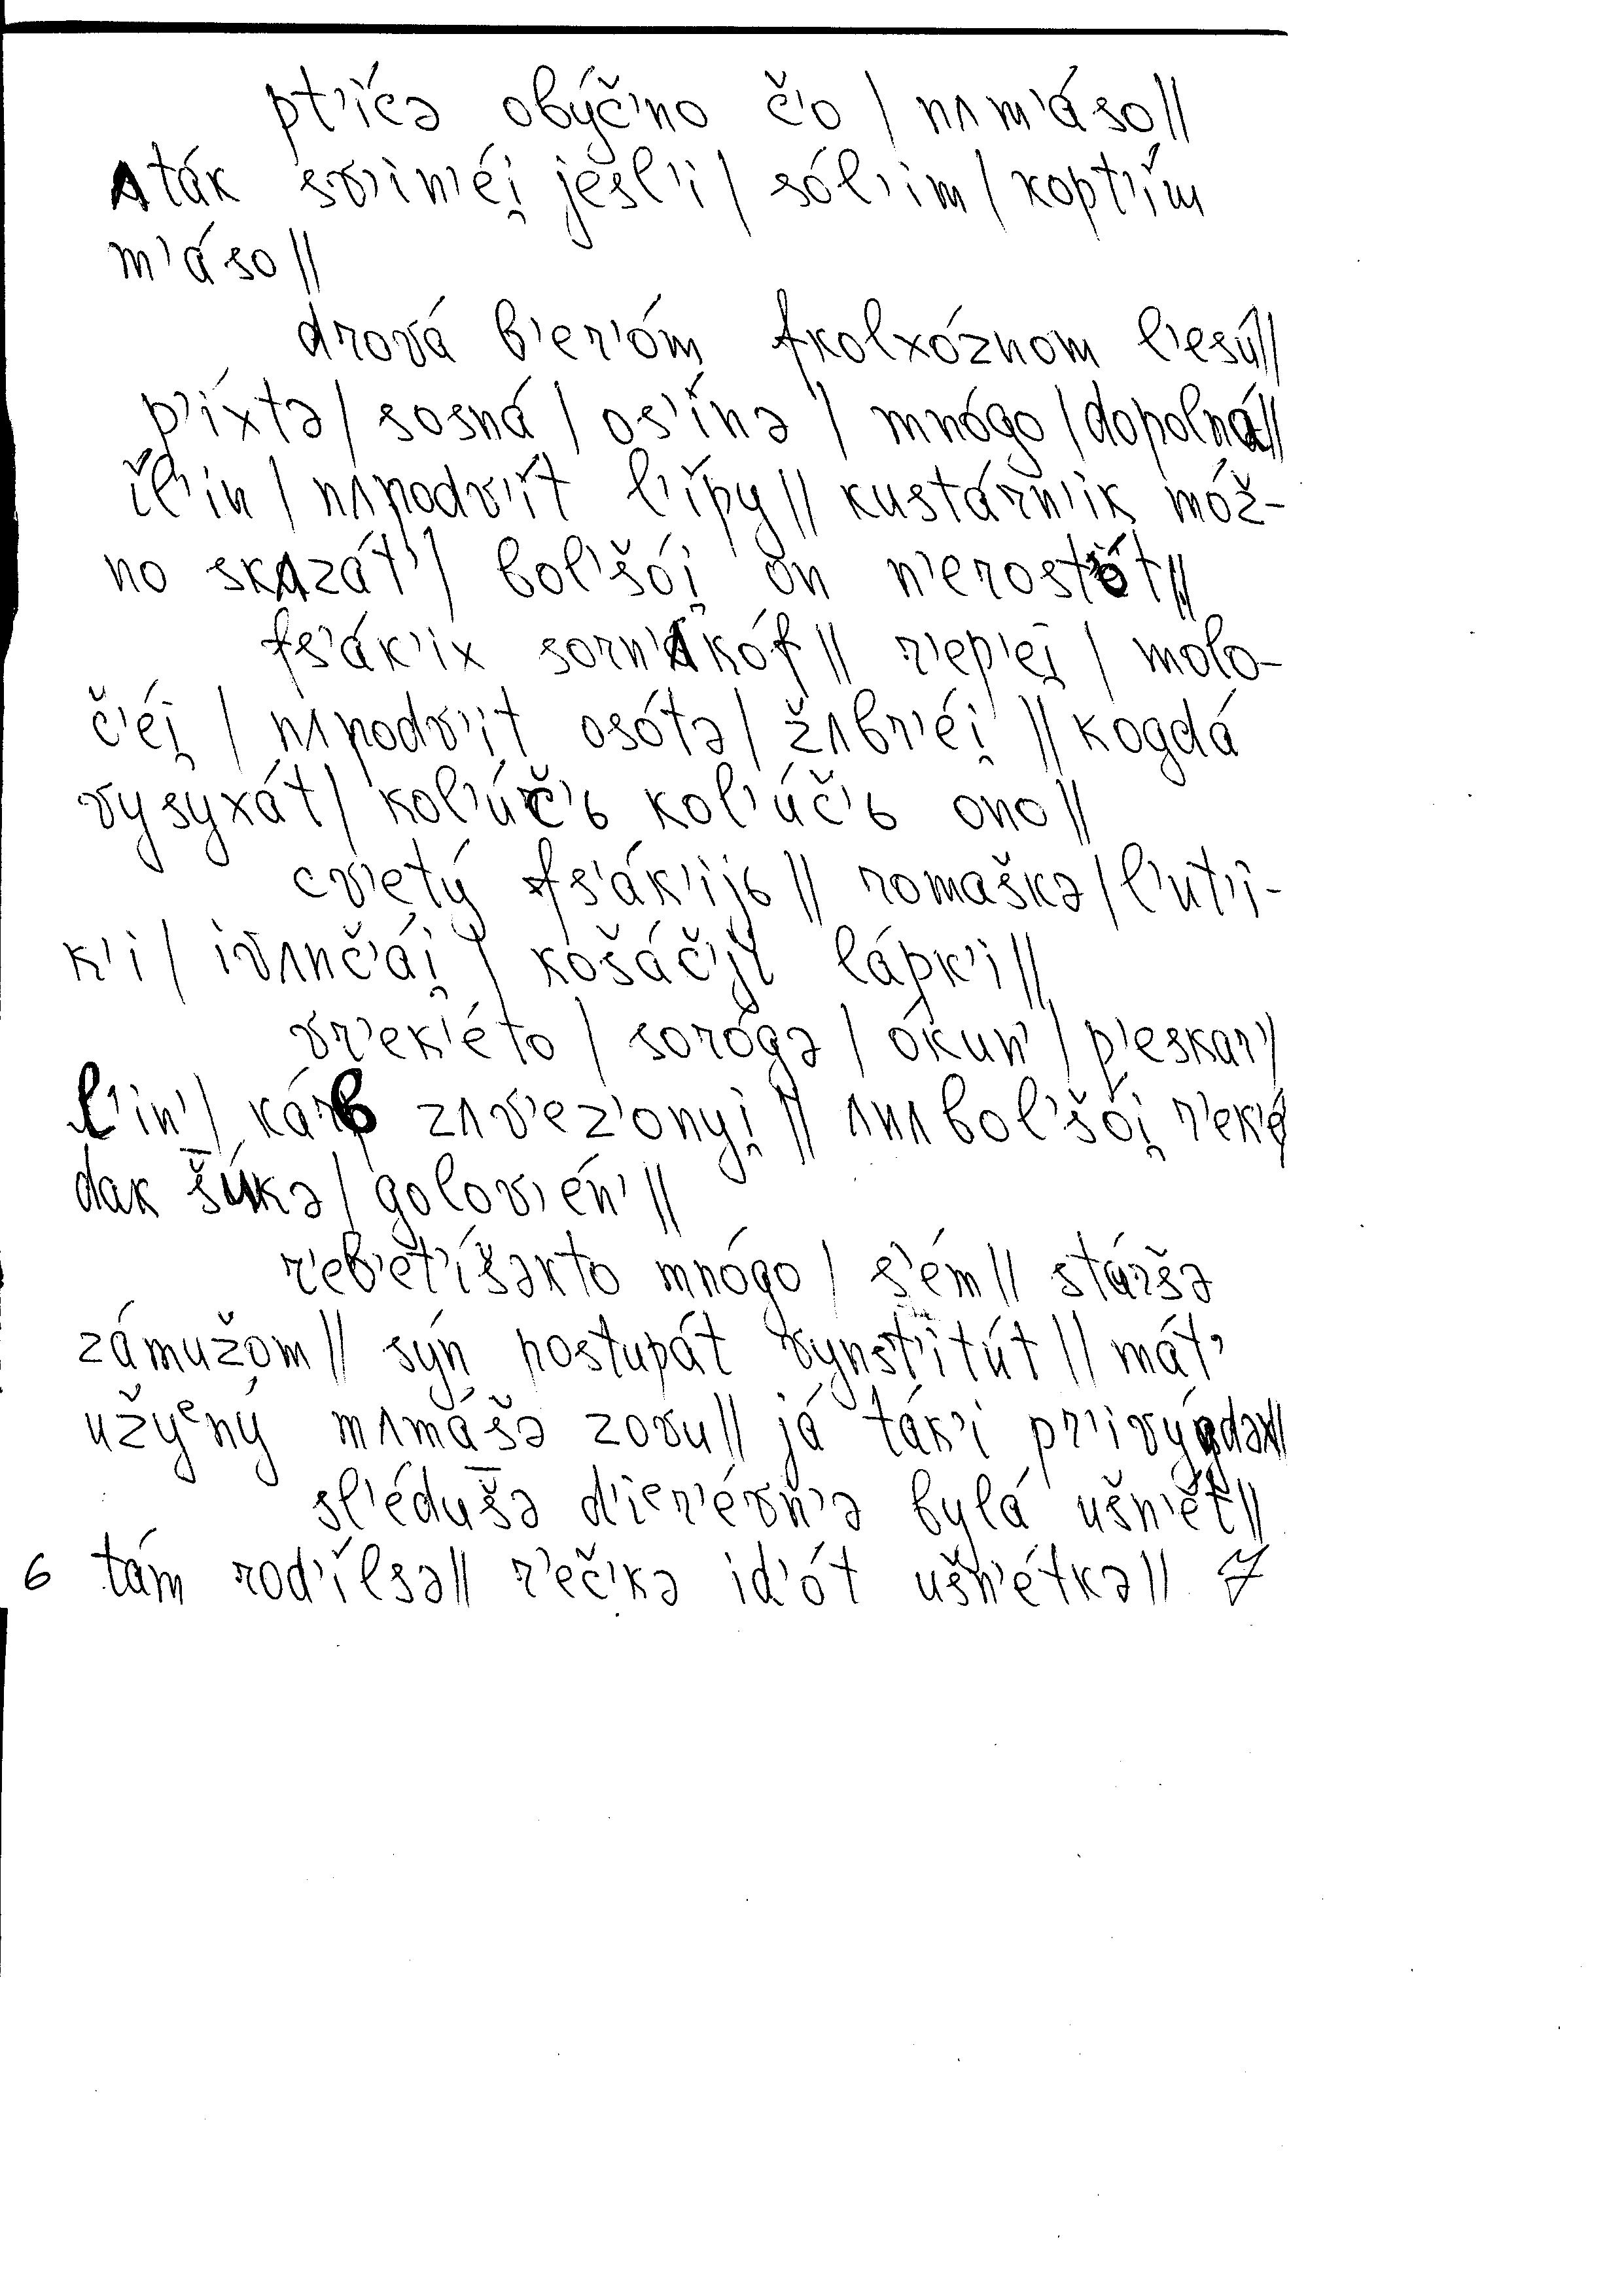 pt'ícə obýč'no č'o | nʌm'áso ||
ʌták sv'in'éi̯ jesl'i | sól'im | kopt'ím
m'áso ||
drová b'er'óm fkolxóznom l'esú ||
p'íxtə | sosná | os'ínə | mnógo | dopolná ||
íl'in | nʌpodv'ít l'ípy || kustárn'ik móž-
no skʌzát' | bol'šói̯ on n'erost'ót ||
fs'ák'ix sorn'ʌkóf || r'ep'ei̯ | molo-
č'éi̯ | nʌpodv'it osótə | žʌbr'éi̯ || kogdá
vysyxát | kol'úč'ь kol'úč'ь ono ||
cv'etý fs'ák'ijь || romaškə | l'ut'i-
k'i | ivʌnč'ái̯ | košáč'jī lápk'i ||
vr'ek'éto | sorógə | ókun' | p'eskar' |
l'in' | kárp zʌv'ez'onyi̯ || ʌnʌbol'šói̯ r'ek'é
dak š̄úkə | golov'én' ||
r'eb'et'íšəkto mnógo | s'ém || stáršə
zámužom || sýn postupát vynst'itút || mát'
užyᵉný mʌmášə zovu || já ták'i pr'ivýgdəl ||
sl'éduš̄ə d'iᵉr'évn'ə bylá ušn'ét ||
6 tám rod'ílsə || r'éč'kə id'ót ušn'étkə || 7